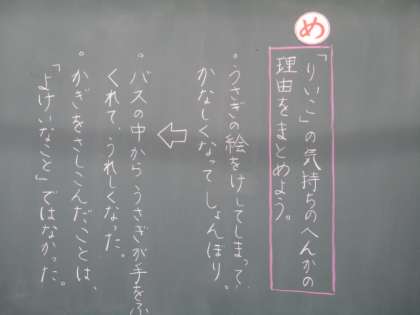 め
「りいこ」の気持ちのへんかの
理由をまとめよう。
・うさぎの絵をけしてしまって、
かなしくなってしょんぼり。
⇦
・バスの中からうさぎが手をふ
くれて、うれしくなった。
・かぎをさしこんだことは、
「よけいなこと」ではなかった。